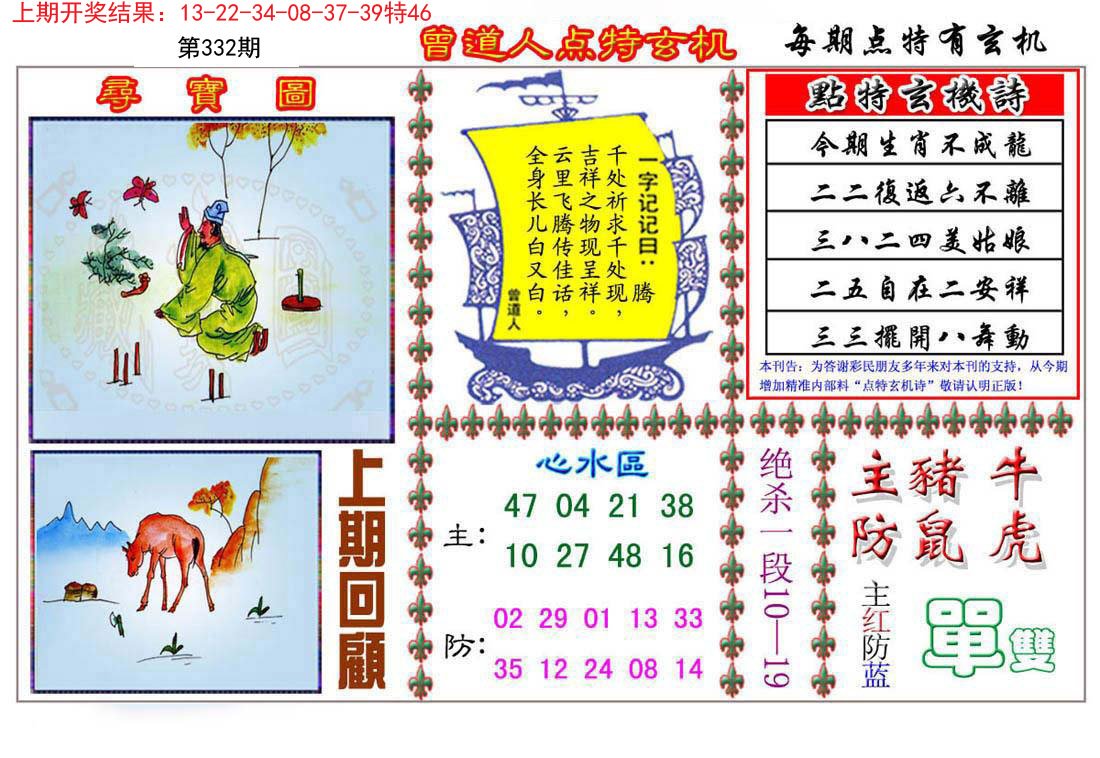 上期开奖结果：13-22-34-08-37-39特46
第332期
曾道人点特玄机
每期点特有玄机
尋寶圖
一字记记曰：腾
千处祈求千处现，
吉祥之物现呈祥。
云里飞腾传佳话，
全身长儿白又白。
曾道人
點特玄機詩
今期生肖不成龍
二二復返六不離
三八二四美姑娘
二五自在二安祥
三三擺開八舞動
本刊告：为答谢彩民朋友多年来对本刊的支持，从今期
增加精准内部料“点特玄机诗”敬请认明正版！
上期回顧
心水區
主：
47 04 21 38
10 27 48 16
防：
02 29 01 13 33
35 12 24 08 14
绝杀一段10—19
主豬牛
防鼠虎
主红防蓝
單雙